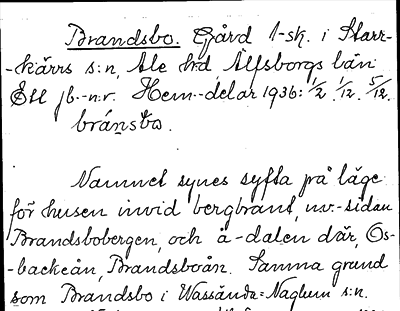 Brandsbo. Gård 1-sk. i Starr-
-kärrs s:n, Ale hd, Älfsborgs län
Ett jb.-n:r. Hem.-delar 1936: 1/2. 1/12. 5/12.
bránsbo.
Namnet synes syfta på läge
för husen invid bergbrant, nv.-sidan
Brandsbobergen, och å-dalen där, Os-
-backeån, Brandsboån. Samma grund
som Brandsbo i Wassända=Naglum s:n.